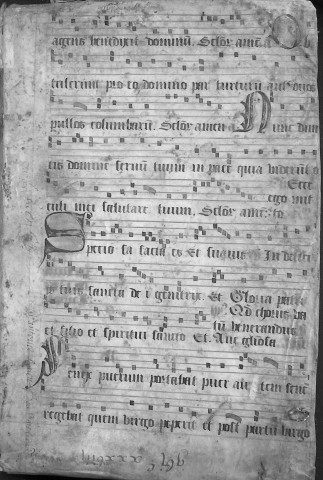 agens benedixit dominū. Sc̄lor̄ amē. O
tulerunt pro eo domino par turturū aut duos
pullos columbarū. Sc̄lor̄ amen Nunc dimi
tis domine seruū tuum in pace quia viderūt o
Ecce
ego mit
culi mei salutare tuum. Sc̄lor̄ amē. to
Specio sa facta es Et suauis In delici
is tuis sancta de i genitrix. Et Gloria patri
Ad chorus
tū venerandus
et filio et spiritui sancto Et. Aue gliosa
puerum portabat puer aūt senē
regebat quem virgo peperit et post partū virgo